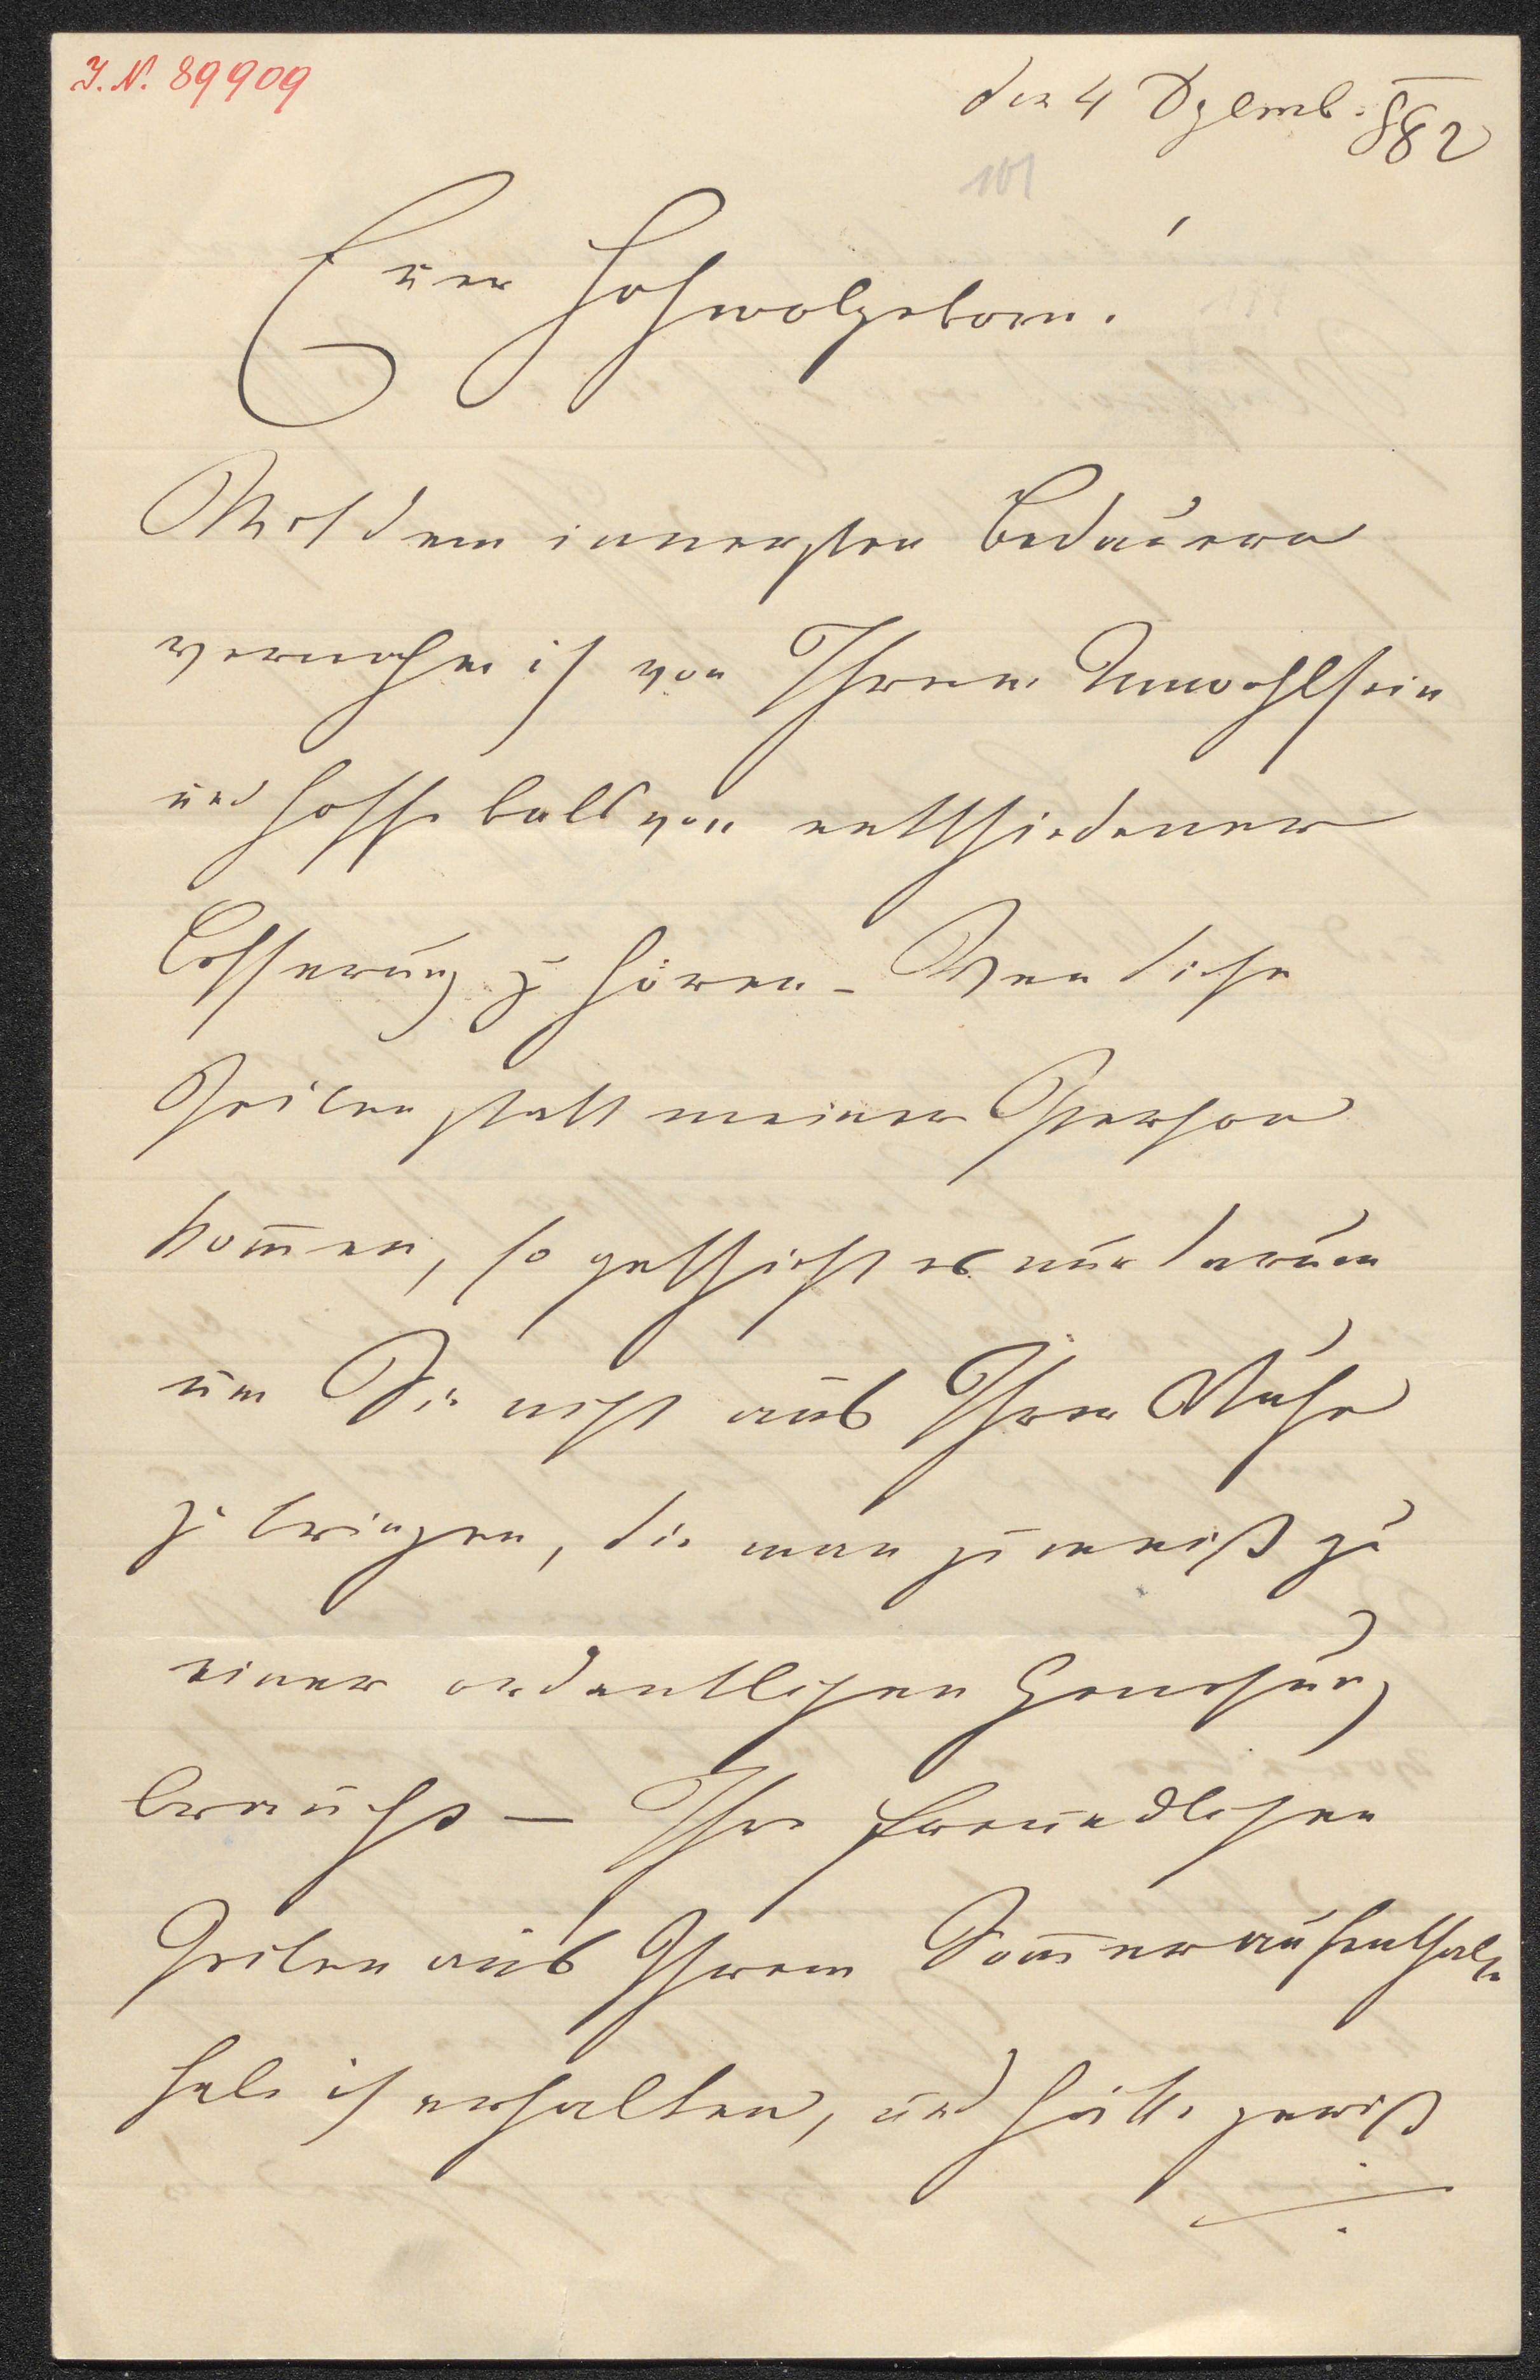 I. N. 89909
den 4 Dzemb. 882
101
Euer Hochwolgeborn!
Mit dem innersten Bedauern
vernahm ich von Ihrem Unwohlsein
und hoffe bald von entschiedener
Besserung zu hören – Wenn diese
Zeilen statt meiner Person
kom̄en, so geschieht es nur darum
um Sie nicht aus Ihrer Ruhe
zu bringen, die man zumeist zu
einer ordentlichen Genesung
braucht – Ihre freundlichen
Zeilen aus Ihrem Som̄eraufenthalte
habe ich erhalten, und hätte gewiß